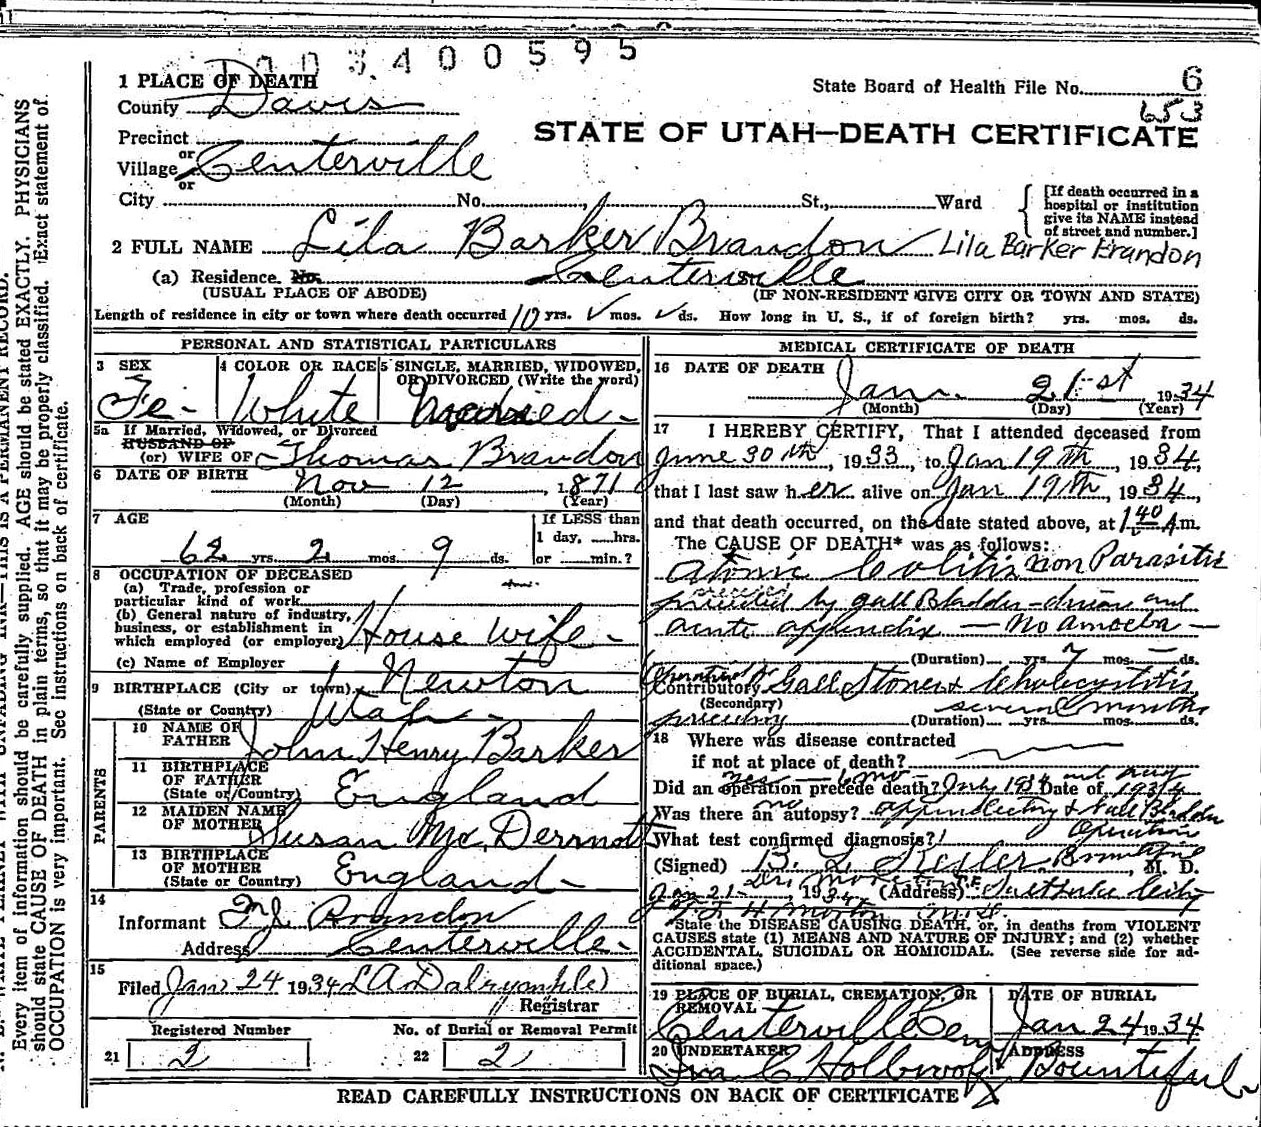 003400595
1 PLACE OF DEATH
State Board of Health File No. 6
653
County Davis
STATE OF UTAH—DEATH CERTIFICATE
Precinct
or
Village Centerville
or
City No. , St., Ward
[If death occurred in a
hospital or institution
give its NAME instead
of street and number.]
2 FULL NAME Lila Barker Brandon Lila Barker Brandon
(a) Residence. No. Centerville
(USUAL PLACE OF ABODE) (IF NON-RESIDENT GIVE CITY OR TOWN AND STATE)
Length of residence in city or town where death occurred 10 yrs. ✓ mos. ✓ ds. How long in U. S., if of foreign birth? yrs. mos. ds.
PERSONAL AND STATISTICAL PARTICULARS
3 SEX
Fe-
4 COLOR OR RACE
White
5 SINGLE, MARRIED, WIDOWED,
OR DIVORCED (Write the word)
Married
5a If Married, Widowed, or Divorced
HUSBAND OF
(or) WIFE OF Thomas Brandon
6 DATE OF BIRTH Nov 12, 1871
(Month) (Day) (Year)
7 AGE
62 yrs. 2 mos. 9 ds.
If LESS than
1 day, hrs.
or min.?
8 OCCUPATION OF DECEASED
(a) Trade, profession or
particular kind of work
(b) General nature of industry,
business, or establishment in
which employed (or employer) House wife
(c) Name of Employer
9 BIRTHPLACE (City or town) Newton
(State or Country) Utah
PARENTS
10 NAME OF
FATHER John Henry Barker
11 BIRTHPLACE
OF FATHER
(State or Country) England
12 MAIDEN NAME
OF MOTHER Susan McDerrmott
13 BIRTHPLACE
OF MOTHER
(State or Country) England
14
Informant Brandon
Address Centerville
15
Filed Jan 24 1934 L A Dalrymple
Registrar
Registered Number No. of Burial or Removal Permit
21 2 22 2
MEDICAL CERTIFICATE OF DEATH
16 DATE OF DEATH
Jan. 21st 1934
(Month) (Day) (Year)
17 I HEREBY CERTIFY, That I attended deceased from
June 30th, 1933, to Jan 19th, 1934,
that I last saw her alive on Jan 19th, 1934,
and that death occurred, on the date stated above, at 1:40 A.m.
The CAUSE OF DEATH* was as follows:
Atonic Colitis non Parasitic
preceded by gall Bladder and
acute appendix — No amoeba —
(Duration) yrs. 7 mos. ds.
Contributory Gall Stones & Cholecystitis
(Secondary) several months
(Duration) yrs. mos. ds.
18 Where was disease contracted
if not at place of death?
Did an operation precede death? yes — 6 mo — Date of
Was there an autopsy? no appendectomy & Gall Bladder
Operation
What test confirmed diagnosis?
(Signed) B. L. Kesler Bountiful, M. D.
Jan 21- 1934 (Address)
*State the DISEASE CAUSING DEATH, or, in deaths from VIOLENT
CAUSES state (1) MEANS AND NATURE OF INJURY; and (2) whether
ACCIDENTAL, SUICIDAL OR HOMICIDAL. (See reverse side for ad-
ditional space.)
19 PLACE OF BURIAL, CREMATION, OR
REMOVAL
Centerville Cem
DATE OF BURIAL
Jan 24 1934
20 UNDERTAKER
Iva C Holbrook
ADDRESS
Bountiful
READ CAREFULLY INSTRUCTIONS ON BACK OF CERTIFICATE
Every item of information should be carefully supplied. AGE should be stated EXACTLY. PHYSICIANS
should state CAUSE OF DEATH in plain terms, so that it may be properly classified. Exact statement of
OCCUPATION is very important. See instructions on back of certificate.